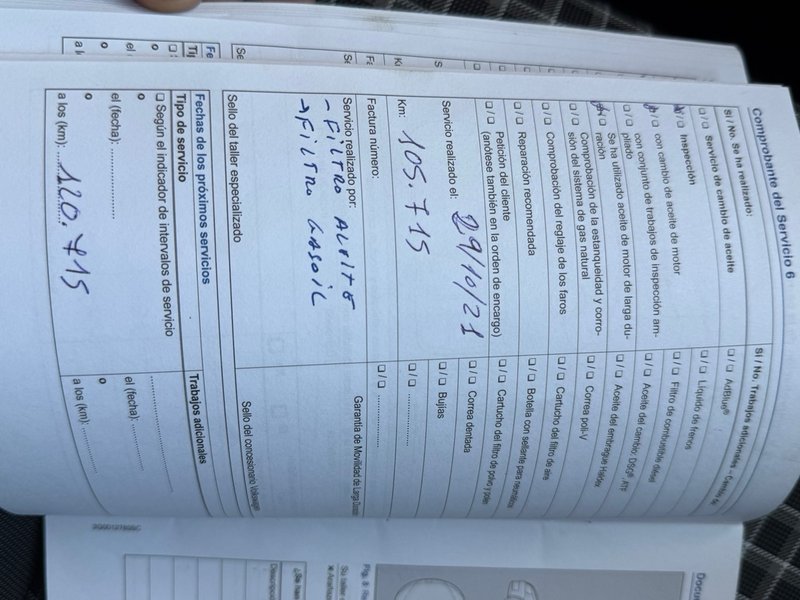 Comprobante del Servicio 6
Sí / No. Se ha realizado:
❑ / ❑ Servicio de cambio de aceite
❑ / ❑ Inspección
❑ / ❑ con cambio de aceite de motor
❑ / ❑ con conjunto de trabajos de inspección am-
pliado
❑ / ❑ Se ha utilizado aceite de motor de larga du-
ración
❑ / ❑ Comprobación de la estanqueidad y corro-
sión del sistema de gas natural
❑ / ❑ Comprobación del reglaje de los faros
❑ / ❑ Reparación recomendada
❑ / ❑ Petición del cliente
(anótese también en la orden de encargo)
Servicio realizado el: 29/10/21
Km: 105.715
Factura número:
Servicio realizado por:
- FILTRO ACEITE
→ FILTRO GASOIL
Sello del taller especializado
Sí / No. Trabajos adicionales - Cambio de
❑ / ❑ AdBlue®
❑ / ❑ Líquido de frenos
❑ / ❑ Filtro de combustible diésel
❑ / ❑ Aceite del cambio: DSG®
❑ / ❑ Aceite del embrague Haldex
❑ / ❑ Correa poli-V
❑ / ❑ Cartucho del filtro de aire
❑ / ❑ Botella con sellante para neumáticos
❑ / ❑ Cartucho del filtro de polvo y polen
❑ / ❑ Correa dentada
❑ / ❑ Bujías
❑ / ❑ ..............
❑ / ❑ ..............
Garantía de Movilidad de Larga Duración
Sello del concesionario Volkswagen
Fechas de los próximos servicios
Tipo de servicio
❑ Según el indicador de intervalos de servicio
o
el (fecha): ..............
o
a los (km): 120.715
Trabajos adicionales
..............
el (fecha): ..............
o
a los (km): ..............